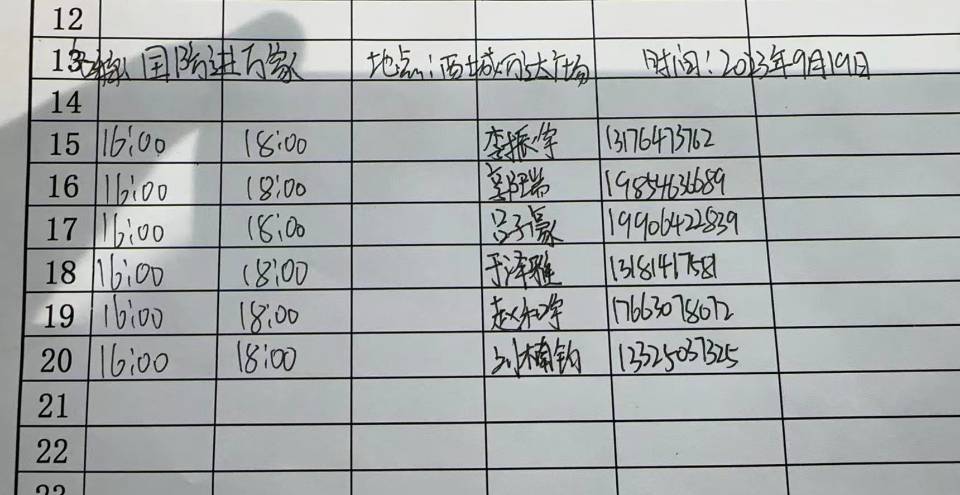 12
13 国防进万家 地点:西城万达广场 时间:2023年9月19日
14
15 16:00 18:00 李振宇 13176473762
16 16:00 18:00 19854636689
17 16:00 18:00 吕子豪 19906422839
18 16:00 18:00 于泽雅 13181417581
19 16:00 18:00 赵和宇 17663078072
20 16:00 18:00 刘楠钧 12325037325
21
22
23